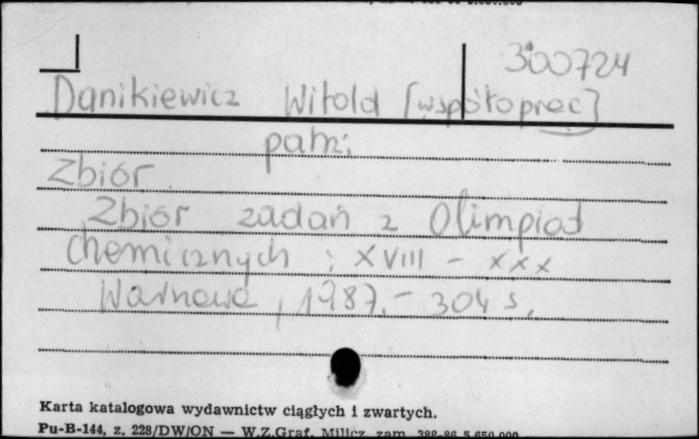 300724
Danikiewicz Witold [współoprac]
patrz:
Zbiór
Zbiór zadań z Olimpiad
chemicznych : XVIII - XXX
Warszawa, 1987. - 304 s.
Karta katalogowa wydawnictw ciągłych i zwartych.
Pu-B-144, z. 228/DW/ON — W.Z.Graf. Milicz, zam. 388-86 5.650.000